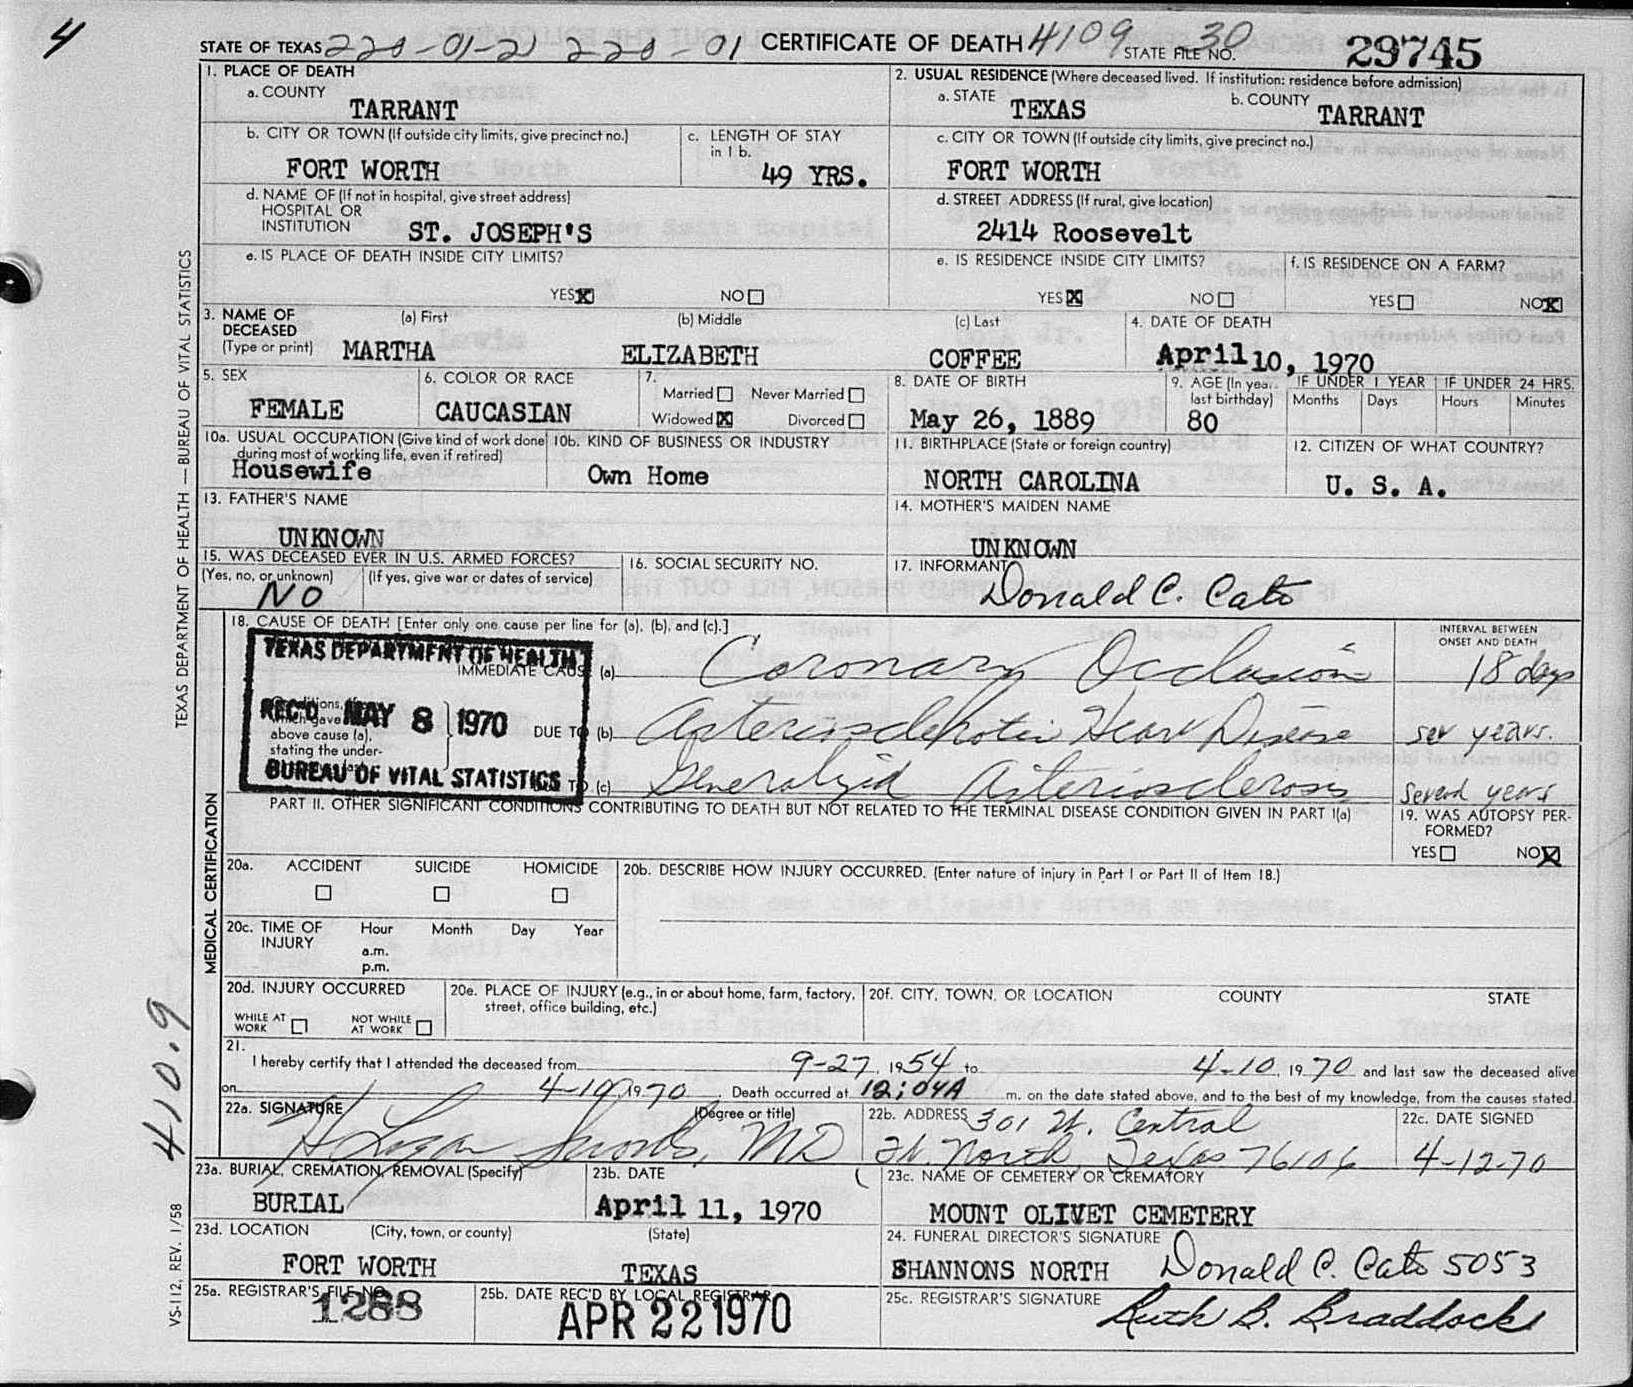 4
STATE OF TEXAS 220-01-21 220-01 CERTIFICATE OF DEATH 4109 STATE FILE NO. 30 29745
1. PLACE OF DEATH
a. COUNTY
TARRANT
2. USUAL RESIDENCE (Where deceased lived. If institution: residence before admission)
a. STATE TEXAS b. COUNTY TARRANT
b. CITY OR TOWN (If outside city limits, give precinct no.)
FORT WORTH
c. LENGTH OF STAY in 1 b.
49 YRS.
c. CITY OR TOWN (If outside city limits, give precinct no.)
FORT WORTH
d. NAME OF (If not in hospital, give street address)
HOSPITAL OR
INSTITUTION ST. JOSEPH'S
d. STREET ADDRESS (If rural, give location)
2414 Roosevelt
e. IS PLACE OF DEATH INSIDE CITY LIMITS?
YES X NO
e. IS RESIDENCE INSIDE CITY LIMITS?
YES X NO
f. IS RESIDENCE ON A FARM?
YES NO X
3. NAME OF DECEASED (Type or print)
(a) First (b) Middle (c) Last
MARTHA ELIZABETH COFFEE
4. DATE OF DEATH
April 10, 1970
5. SEX
FEMALE
6. COLOR OR RACE
CAUCASIAN
7.
Married Never Married
Widowed X Divorced
8. DATE OF BIRTH
May 26, 1889
9. AGE (In years last birthday)
80
IF UNDER 1 YEAR IF UNDER 24 HRS.
Months Days Hours Minutes
10a. USUAL OCCUPATION (Give kind of work done during most of working life, even if retired)
Housewife
10b. KIND OF BUSINESS OR INDUSTRY
Own Home
11. BIRTHPLACE (State or foreign country)
NORTH CAROLINA
12. CITIZEN OF WHAT COUNTRY?
U. S. A.
13. FATHER'S NAME
UNKNOWN
14. MOTHER'S MAIDEN NAME
UNKNOWN
15. WAS DECEASED EVER IN U.S. ARMED FORCES?
(Yes, no, or unknown) (If yes, give war or dates of service)
NO
16. SOCIAL SECURITY NO.
17. INFORMANT
Donald C. Cato
18. CAUSE OF DEATH [Enter only one cause per line for (a), (b), and (c).]
INTERVAL BETWEEN ONSET AND DEATH
TEXAS DEPARTMENT OF HEALTH
IMMEDIATE CAUSE (a) Coronary Occlusion 18 days
REC'D MAY 8 1970
above cause (a),
stating the under-
DUE TO (b) Arteriosclerotic Heart Disease sev years.
BUREAU OF VITAL STATISTICS
(c) Generalized Arteriosclerosis Several years
PART II. OTHER SIGNIFICANT CONDITIONS CONTRIBUTING TO DEATH BUT NOT RELATED TO THE TERMINAL DISEASE CONDITION GIVEN IN PART I(a)
19. WAS AUTOPSY PERFORMED?
YES NO X
20a. ACCIDENT SUICIDE HOMICIDE
20b. DESCRIBE HOW INJURY OCCURRED. (Enter nature of injury in Part I or Part II of Item 18.)
20c. TIME OF INJURY Hour Month Day Year
a.m.
p.m.
20d. INJURY OCCURRED
WHILE AT WORK NOT WHILE AT WORK
20e. PLACE OF INJURY (e.g., in or about home, farm, factory, street, office building, etc.)
20f. CITY, TOWN, OR LOCATION COUNTY STATE
21.
I hereby certify that I attended the deceased from 9-27, 1954 to 4-10, 1970 and last saw the deceased alive
on 4-10, 1970. Death occurred at 12;04A m. on the date stated above, and to the best of my knowledge, from the causes stated.
22a. SIGNATURE (Degree or title)
MD
22b. ADDRESS 301 W. Central
Ft. Worth Texas 76106
22c. DATE SIGNED
4-12-70
23a. BURIAL, CREMATION, REMOVAL (Specify)
BURIAL
23b. DATE
April 11, 1970
23c. NAME OF CEMETERY OR CREMATORY
MOUNT OLIVET CEMETERY
23d. LOCATION (City, town, or county) (State)
FORT WORTH TEXAS
24. FUNERAL DIRECTOR'S SIGNATURE
SHANNONS NORTH Donald C. Cato 5053
25a. REGISTRAR'S FILE NO.
1288
25b. DATE REC'D BY LOCAL REGISTRAR
APR 22 1970
25c. REGISTRAR'S SIGNATURE
Ruth B. Braddock
TEXAS DEPARTMENT OF HEALTH—BUREAU OF VITAL STATISTICS
MEDICAL CERTIFICATION
410.9
VS-112, REV. 1/58